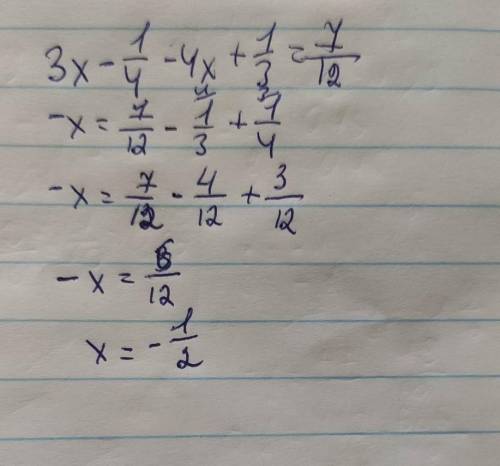 3x - 1/4 - 4x + 1/3 = 7/12
-x = 7/12 - 1/3 + 1/4
-x = 7/12 - 4/12 + 3/12
-x = 6/12
x = - 1/2